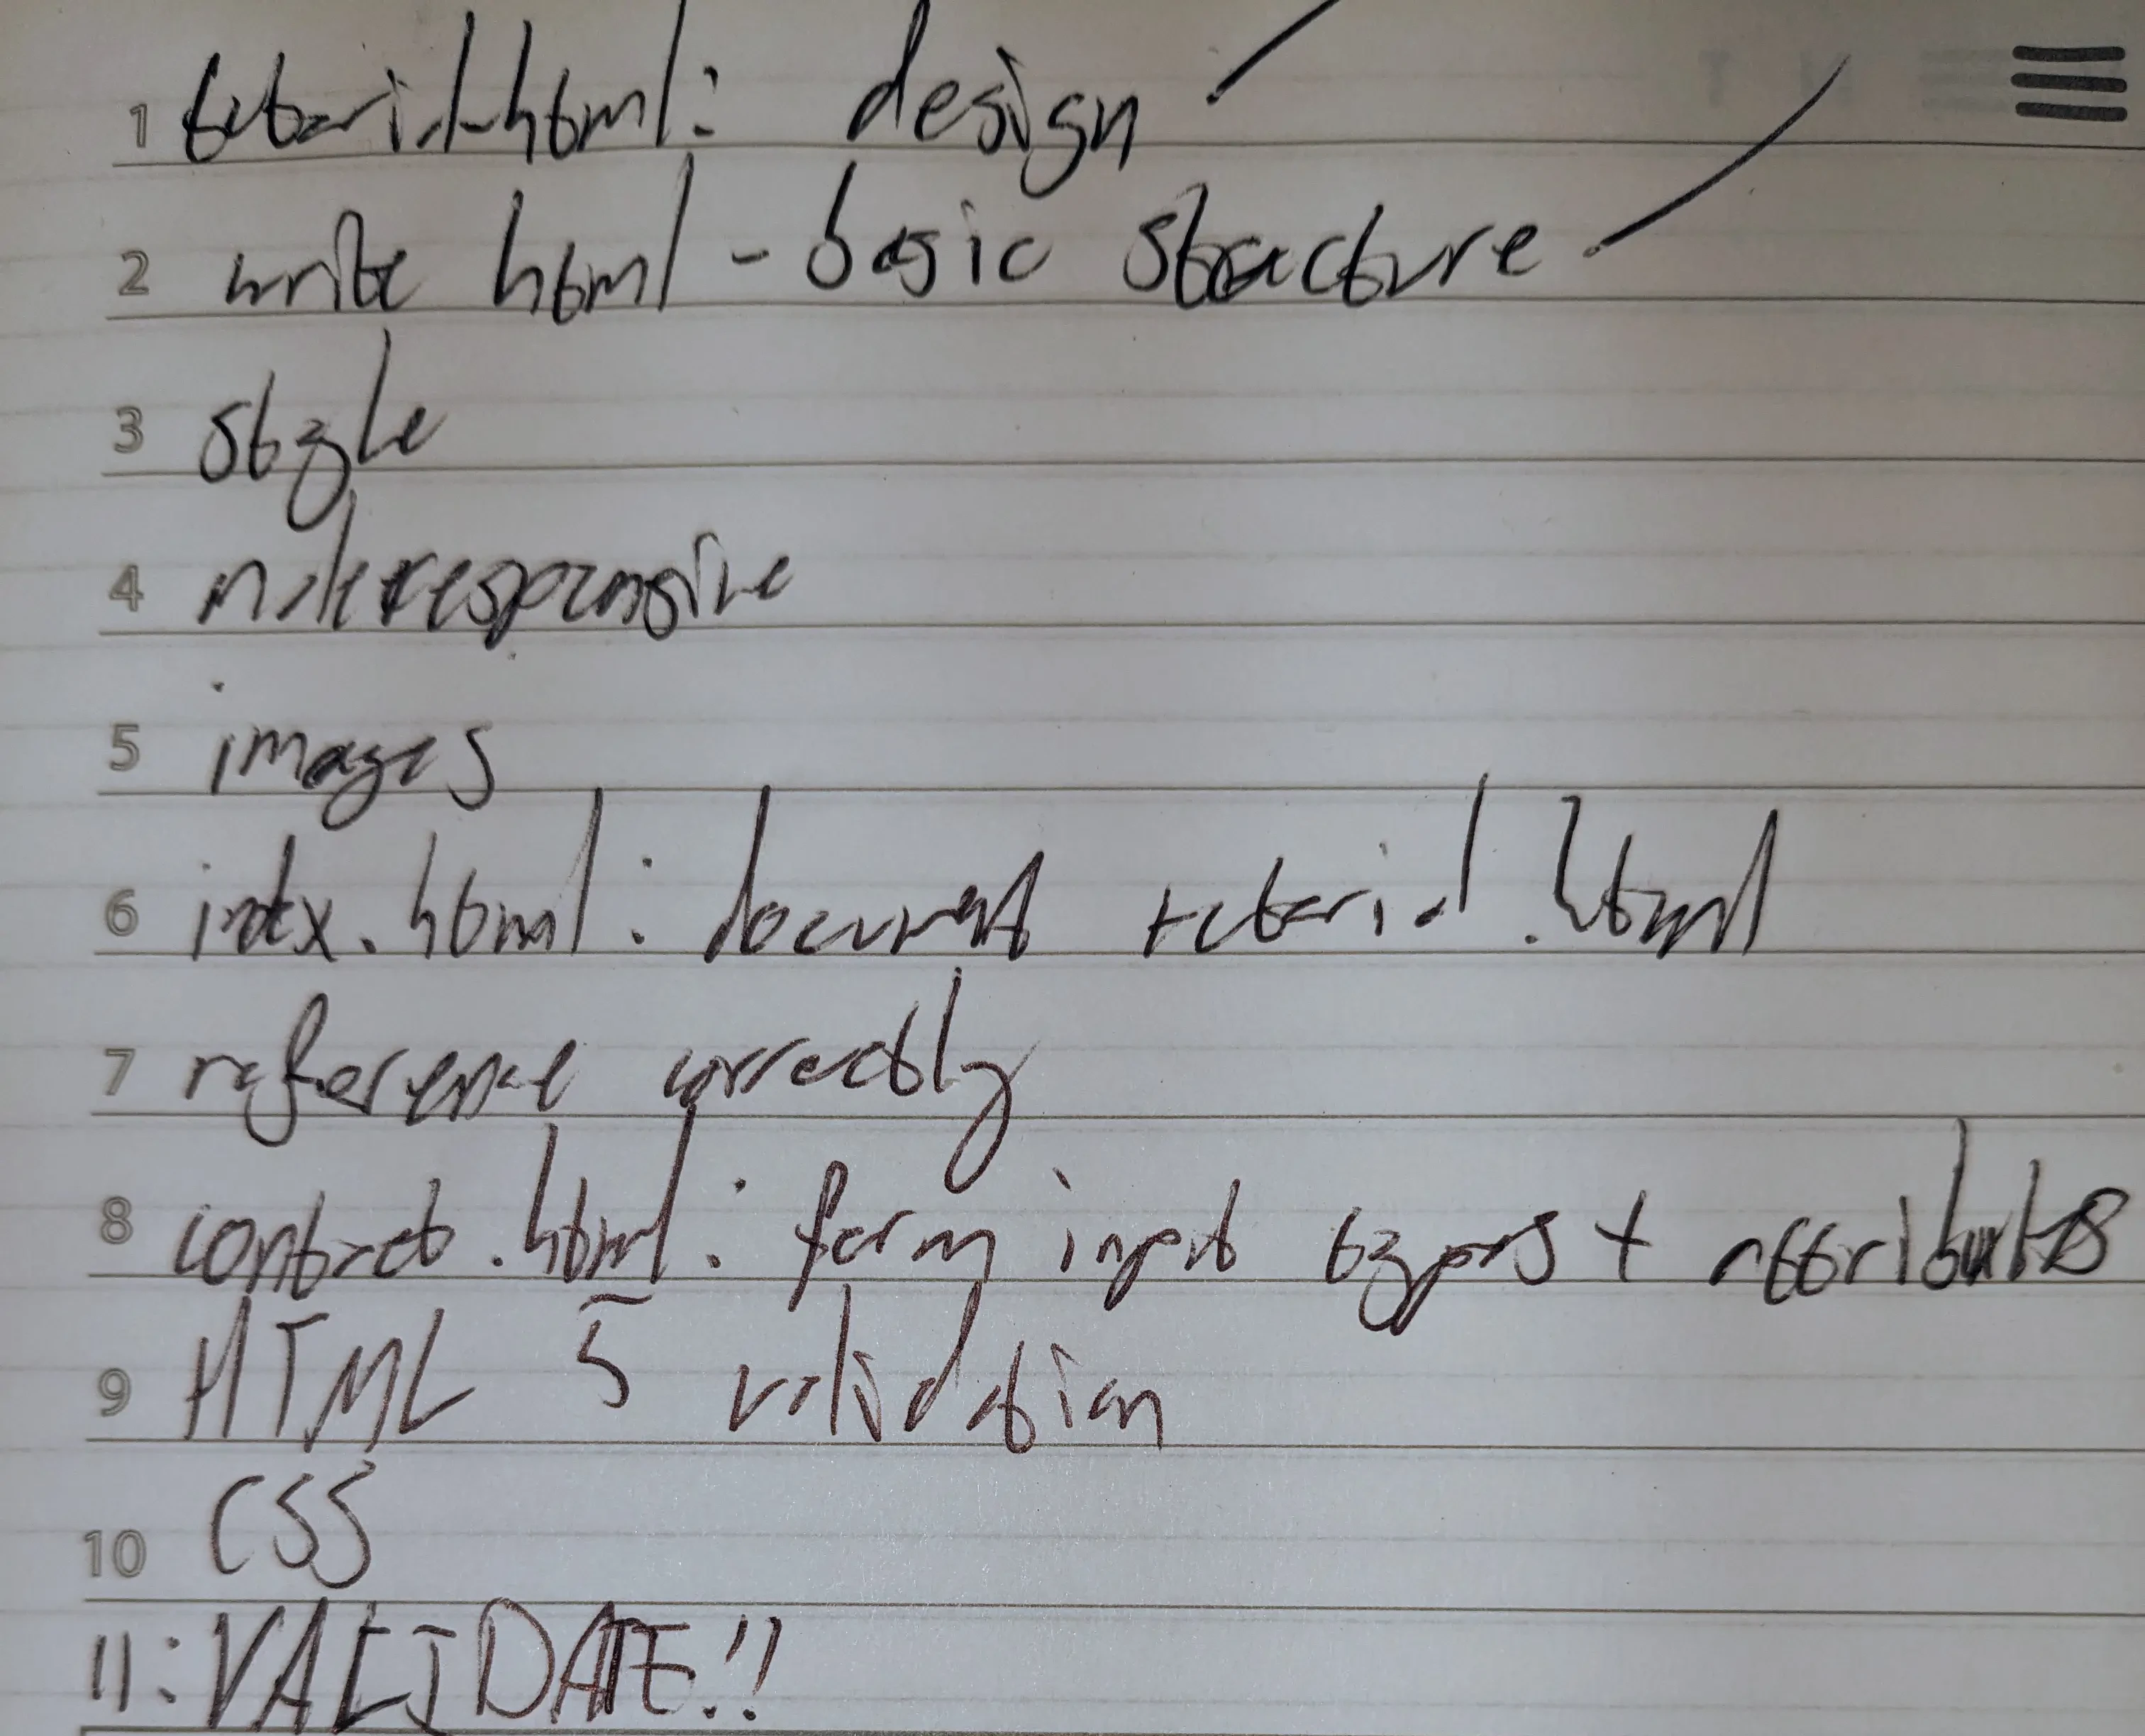 1 tutorial.html: design
2 write html - basic structure
3 style
4 make responsive
5 images
6 index.html: document tutorial.html
7 reference correctly
8 contact.html: form input types + attributes
9 HTML 5 validation
10 CSS
11: VALIDATE!!